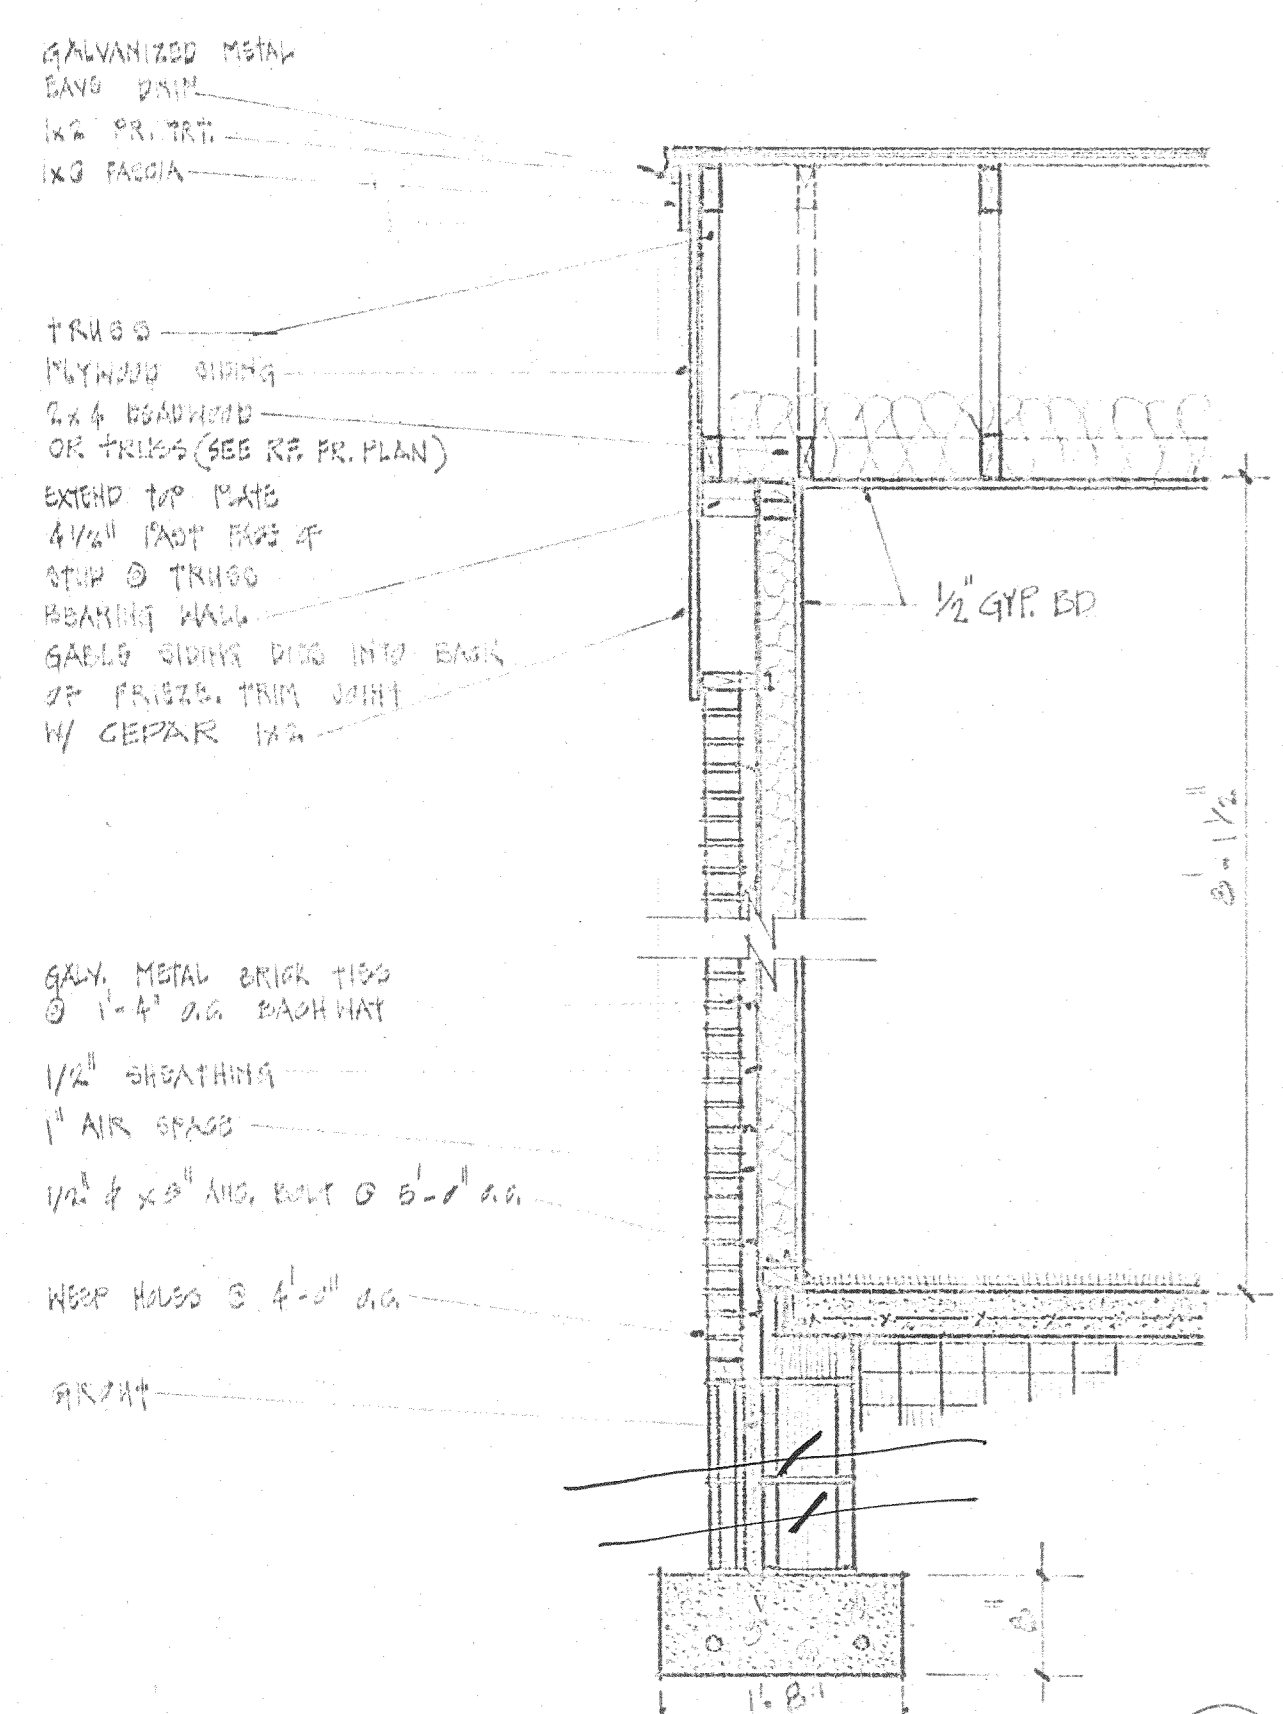 GALVANIZED METAL
EAVE DRIP
1x2 PR. TRT.
1x8 FASCIA
TRUSS
PLYWOOD SIDING
2x4 DEADWOOD
OR TRUSS (SEE RF. FR. PLAN)
EXTEND TOP PLATE
4 1/2" PAST FACE OF
STUD @ TRUSS
BEARING WALL
1/2" GYP. BD
GABLE SIDING DIES INTO BACK
OF FRIEZE. TRIM JOINT
W/ CEDAR 1x2
8'-1 1/2"
GALV. METAL BRICK TIES
@ 1'-4" O.C. EACH WAY
1/2" SHEATHING
1" AIR SPACE
1/2" ϕ x 8" ANC. BOLT @ 5'-0" O.C.
WEEP HOLES @ 4'-0" O.C.
GROUT
8"
1'-8"